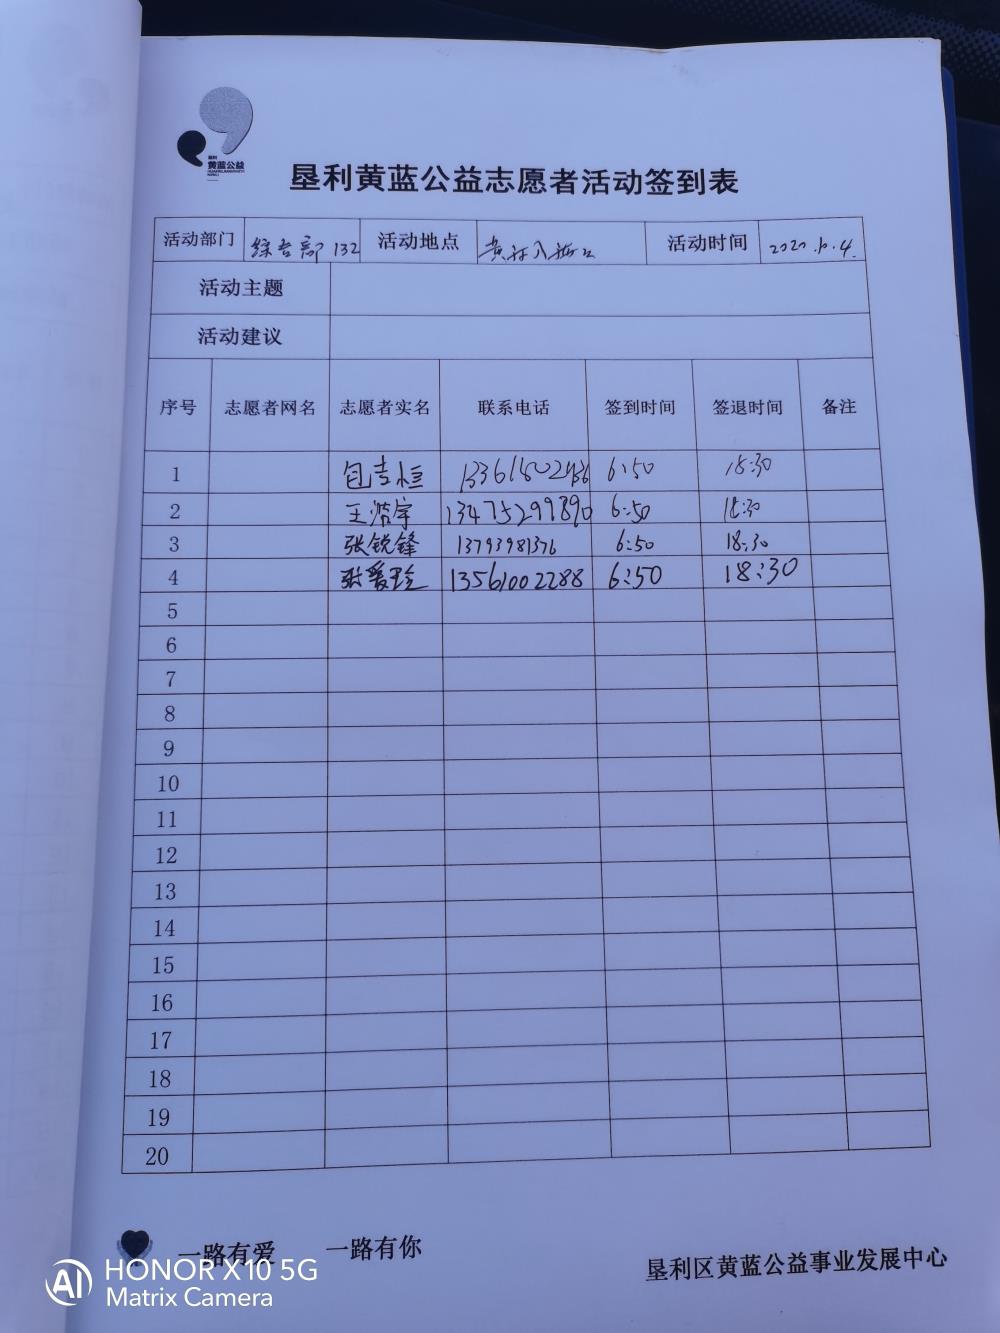 垦利
黄蓝公益
垦利黄蓝公益志愿者活动签到表
活动部门 综合部132 活动地点 黄河入海口 活动时间 2020.10.4.
活动主题
活动建议
序号 志愿者网名 志愿者实名 联系电话 签到时间 签退时间 备注
1 包吉恒 6:50 18:30
2 王浩宇 13475299890 6:50 18:30
3 张锐锋 13793981376 6:50 18:30
4 张爱玲 13561002288 6:50 18:30
5
6
7
8
9
10
11
12
13
14
15
16
17
18
19
20
一路有爱 一路有你
垦利区黄蓝公益事业发展中心
HONOR X10 5G
Matrix Camera